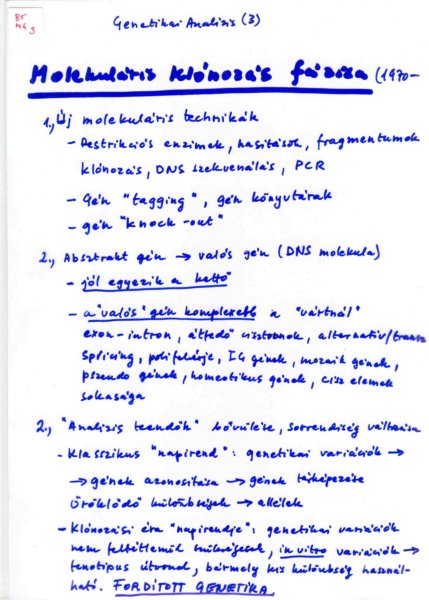 BT
M4 3
Genetikai Analízis (3)
Molekuláris klónozás fázisa (1970-
1., Új molekuláris technikák
- Restrikciós enzimek, hasítások, fragmentumok
klónozás, DNS szekvenálás, PCR
- Gén "tagging", gén könyvtárak
- gén "knock-out"
2., Absztrakt gén → valós gén (DNS molekula)
- jól egyezik a kettő
- a "valós" gén komplexebb a "vártnál"
exon-intron, átfedő cisztronok, alternatív/transz
splicing, polifehérje, IG gének, mozaik gének,
pszeudo gének, homeotikus gének, cisz elemek
sokasága
2., "Analízis teendők" bővülése, sorrendiség változása
- Klasszikus "napirend": genetikai variációk →
→ gének azonosítása → gének térképezése
Öröklődő különbségek → allélek
- Klónozási éra "napirendje": genetikai variációk
nem feltétlenül szükségesek, in vitro variációk →
fenotípus útvonal, bármely kis különbség használ-
ható. FORDÍTOTT GENETIKA.